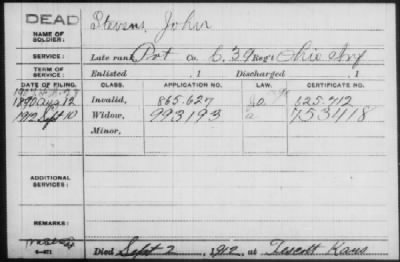 DEAD
NAME OF SOLDIER: Stevens, John
SERVICE: Late rank Pvt Co. C. 39 Reg't Ohio Inf
TERM OF SERVICE: Enlisted , 1 Discharged , 1
DATE OF FILING. CLASS. APPLICATION NO. LAW. CERTIFICATE NO.
1890 Aug 12 Invalid, 865.627 625.712
1912 Sept 10 Widow, 993193 a 753418
Minor,
ADDITIONAL SERVICES:
REMARKS:
Died Sept 2, 1912, at Tescott Kans